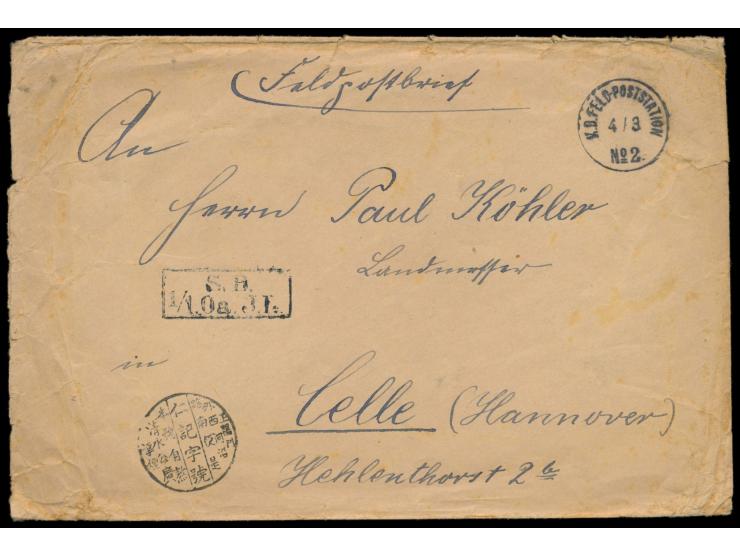 Feldpostbrief
K.D. FELD-POSTSTATION
4/3
No 2.
An
Herrn Paul Köhler
Landmesser
S. B.
1/1.Oa. J.R.
in
Celle (Hannover)
Hehlenthorst 2 b
仁記字號